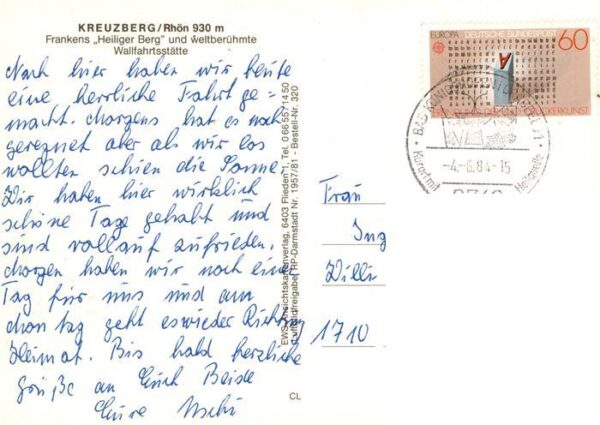 KREUZBERG/Rhön 930 m
Frankens „Heiliger Berg" und weltberühmte
Wallfahrtsstätte
Nach hier haben wir heute
eine herrliche Fahrt ge-
macht. Morgens hat es noch
geregnet aber als wir los
wollten schien die Sonne.
Wir haben hier wirklich
schöne Tage gehabt und
sind vollauf zufrieden.
Morgen haben wir noch ein
Tag für uns und am
Montag geht es wieder Richtung
Heimat. Bis bald herzliche
Grüße an Euch Beide
Eure Uschi
EWS Ansichtskartenverlag, 6403 Flieden 1, Tel. 06655/1450
Luftbildfreigabe RP-Darmstadt Nr. 1957/81 - Bestell-Nr. 320
CL
EUROPA DEUTSCHE BUNDESPOST 60
A
BAD
-4.-6.84-15
Kurort mit
Frau
Ing
Willi
1710